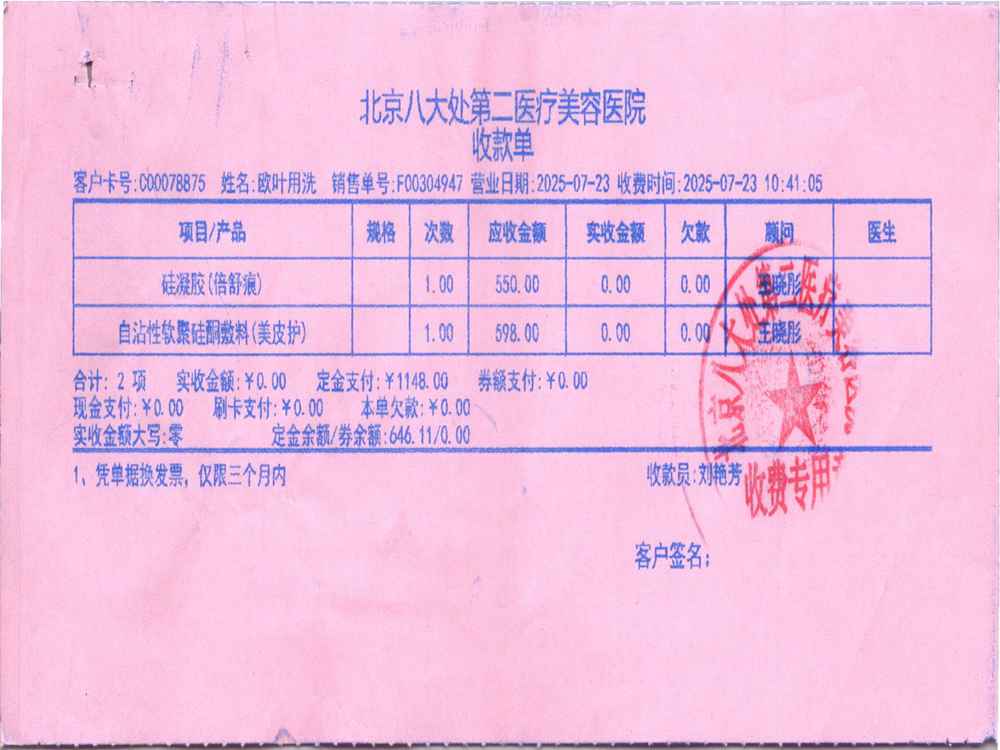 北京八大处第二医疗美容医院
收款单
客户卡号:C00078875 姓名:欧叶用洗 销售单号:F00304947 营业日期:2025-07-23 收费时间:2025-07-23 10:41:05
项目/产品 规格 次数 应收金额 实收金额 欠款 顾问 医生
硅凝胶(倍舒痕) 1.00 550.00 0.00 0.00 王晓彤
自沾性软聚硅酮敷料(美皮护) 1.00 598.00 0.00 0.00 王晓彤
合计: 2 项 实收金额:¥0.00 定金支付:¥1148.00 券额支付:¥0.00
现金支付:¥0.00 刷卡支付:¥0.00 本单欠款:¥0.00
实收金额大写:零 定金余额/券余额:646.11/0.00
1、凭单据换发票, 仅限三个月内 收款员:刘艳芳
客户签名:
北京八大处第二医疗
收费专用